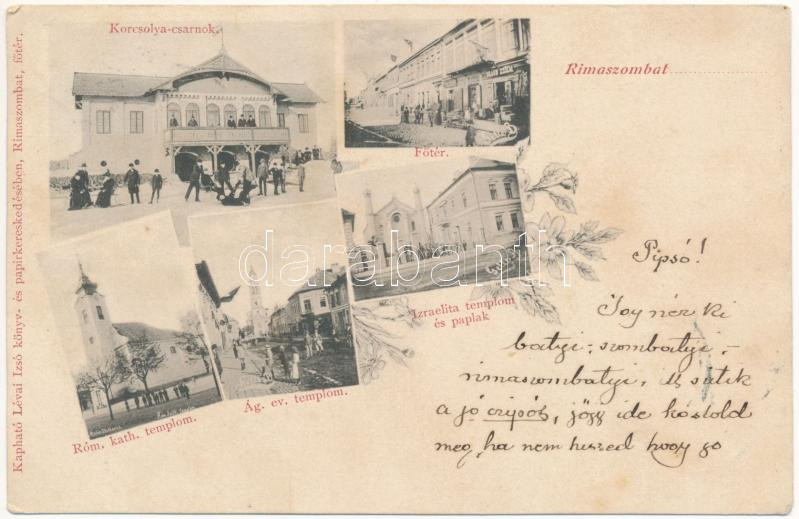 Kapható Lévai Izsó könyv- és papirkereskedésében, Rimaszombat, főtér.
Korcsolya-csarnok.
Főtér.
Rimaszombat
Izraelita templom
és paplak
Ág. ev. templom.
Róm. kath. templom.
darabanth
Pipsó!
Igy néz ki
batyi-szombatyi-
rimaszombatyi,
a jó
jöjj ide kóstold
meg, ha nem hiszed hogy jó